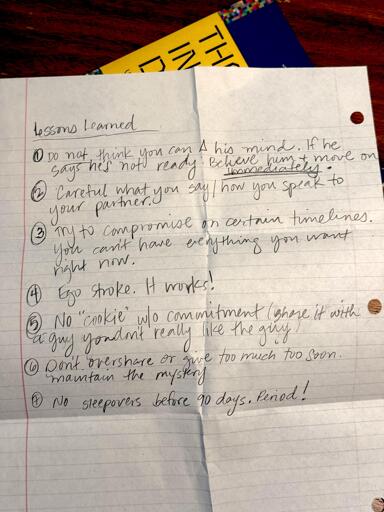 THO
IN
D
Lessons Learned
① Do not think you can Δ his mind. If he
says he's not ready. Believe him + move on
immediately.
② Careful what you say / how you speak to
your partner.
③ Try to compromise on certain timelines.
You can't have everything you want
right now.
④ Ego stroke. It works!
⑤ No "cookie" w/o commitment (share it with
a guy you don't really like the guy)
⑥ Don't overshare or give too much too soon.
maintain the mystery
⑦ No sleepovers before 90 days. Period!